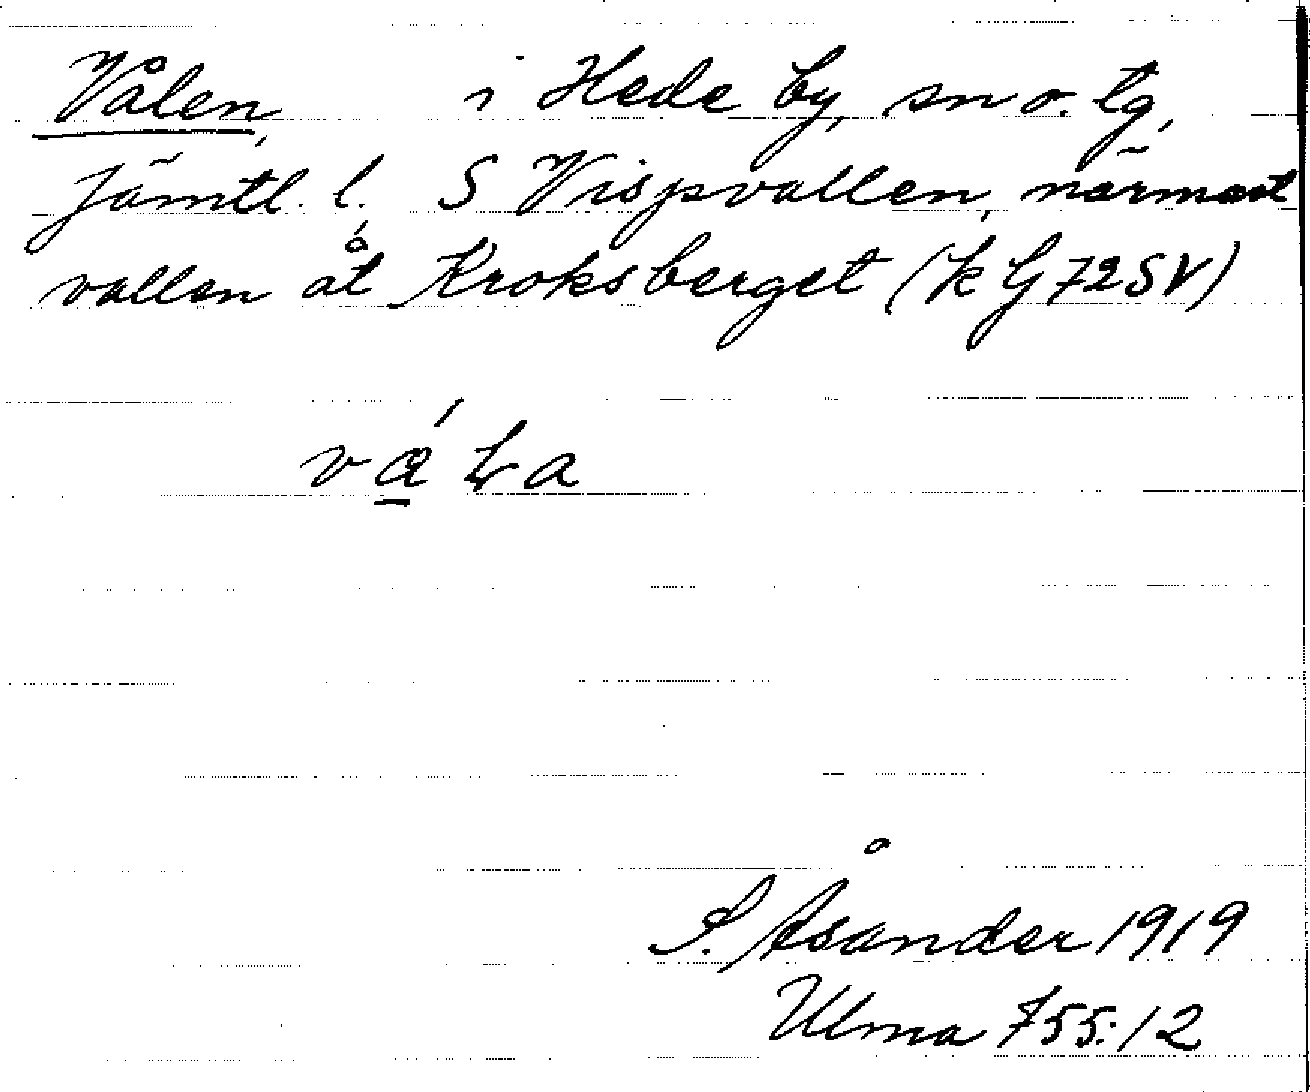 Vålen, i Hede by, sn o. tg,
Jämtl. l. S Vispvallen, närmast
vallen åt Kroksberget (k G 72SV)
S. Åsander 1919
Ulma 755:12